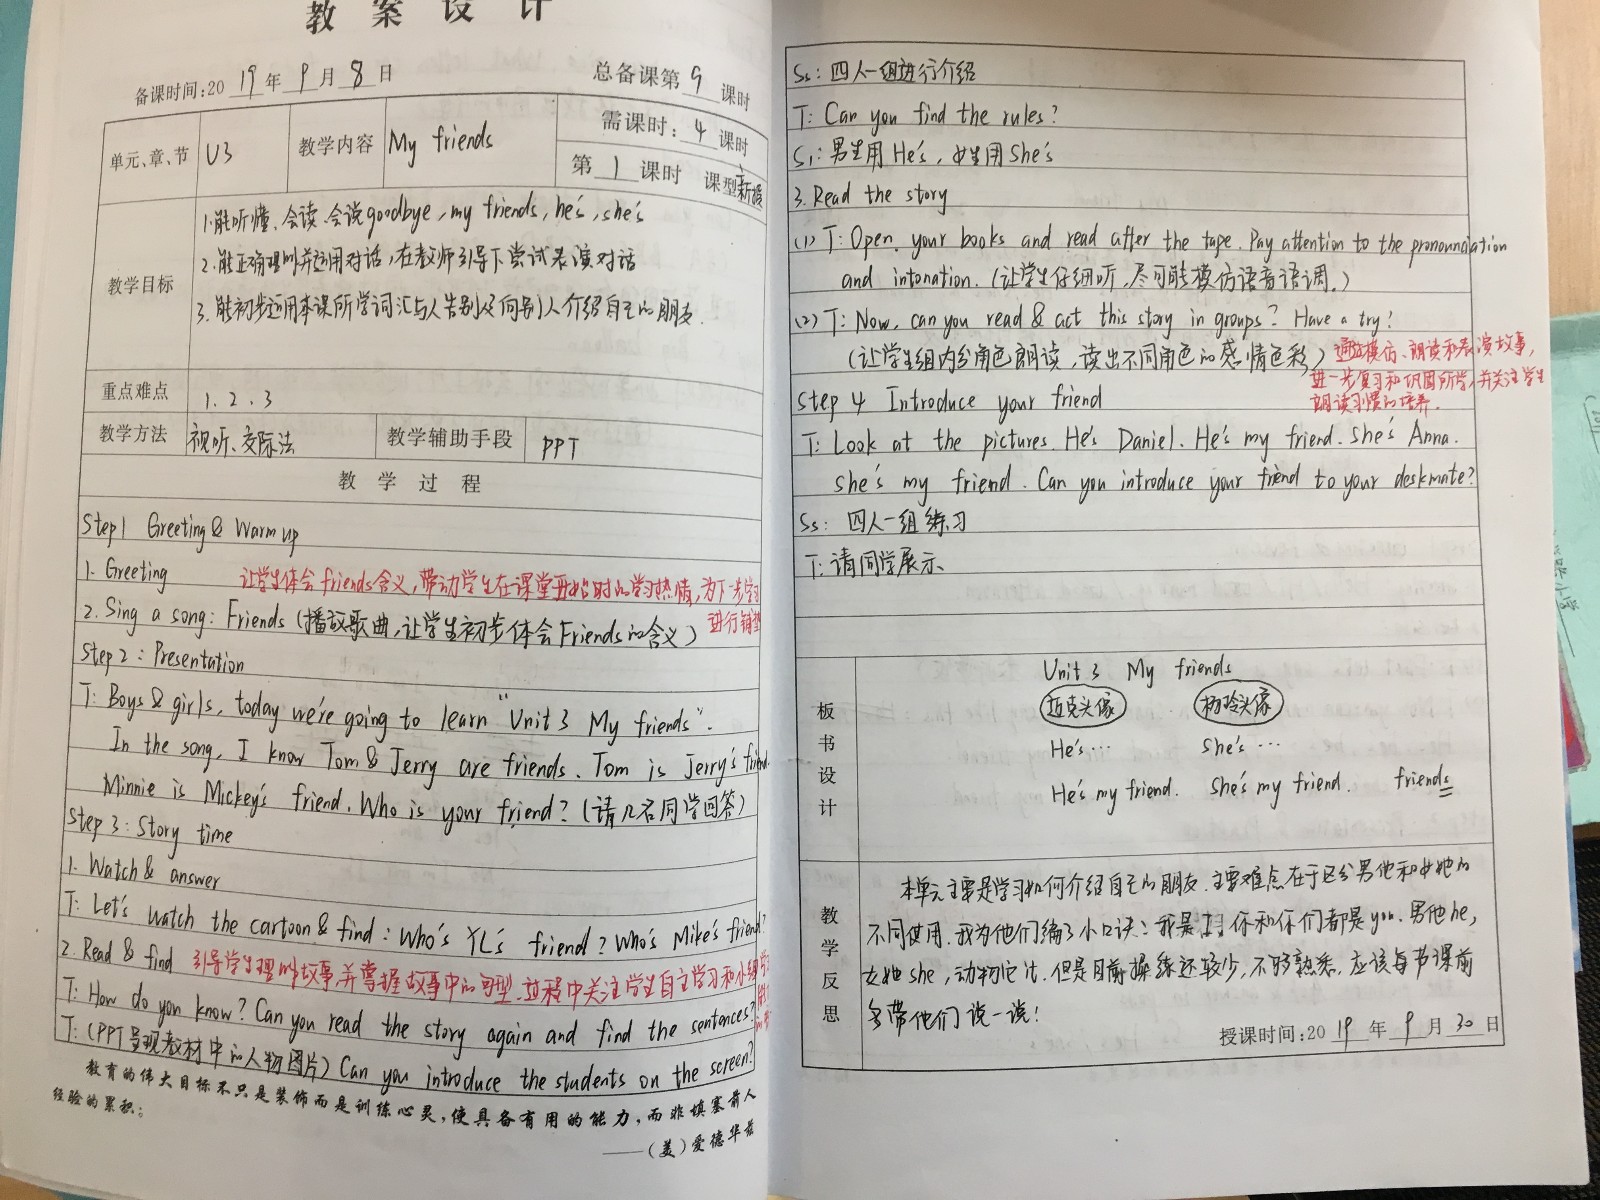 教案设计
备课时间:2019年9月8日 总备课第9课时
单元、章、节 U3 教学内容 My friends 需课时:4课时
第1课时 课型新授
教学目标
1.能听懂、会读、会说goodbye, my friends, he's, she's
2.能正确理解并运用对话,在教师引导下尝试表演对话
3.能初步运用本课所学词汇与人告别及向别人介绍自己的朋友.
重点难点 1. 2. 3
教学方法 视听、交际法 教学辅助手段 PPT
教学过程
Step1 Greeting & Warm up
1. Greeting 让学生体会friends含义,带动学生在课堂开始时的学习热情,为下一步学习
进行铺垫
2. Sing a song: Friends (播放歌曲,让学生初步体会Friends的含义)
Step 2: Presentation
T: Boys & girls, today we're going to learn "Unit 3 My friends".
In the song, I know Tom & Jerry are friends. Tom is Jerry's friend.
Minnie is Mickey's friend. Who is your friend? (请几名同学回答)
Step 3: Story time
1. Watch & answer
T: Let's watch the cartoon & find: Who's YL's friend? Who's Mike's friend?
2. Read & find 引导学生理解故事,并掌握故事中的句型.过程中关注学生自主学习和小组学习
T: How do you know? Can you read the story again and find the sentences?
T: (PPT呈现教材中的人物图片) Can you introduce the students on the screen?
教育的伟大目标不只是装饰而是训练心灵,使具备有用的能力,而非填塞前人
经验的累积;
——(美)爱德华兹
Ss: 四人一组进行介绍
T: Can you find the rules?
S1: 男生用He's, 女生用She's
3. Read the story
(1) T: Open your books and read after the tape. Pay attention to the pronounciation
and intonation. (让学生仔细听,尽可能模仿语音语调.)
(2) T: Now, can you read & act this story in groups? Have a try!
(让学生组内分角色朗读,读出不同角色的感情色彩.) 通过模仿、朗读和表演故事,
进一步复习和巩固所学,并关注学生
朗读习惯的培养.
Step 4 Introduce your friend
T: Look at the pictures. He's Daniel. He's my friend. She's Anna.
she's my friend. Can you introduce your friend to your deskmate?
Ss: 四人一组练习
T: 请同学展示.
板书设计
Unit 3 My friends
迈克头像 杨玲头像
He's… She's…
He's my friend. She's my friend. friends
教学反思
本单元主要是学习如何介绍自己的朋友.主要难点在于区分男他和女她的
不同使用.我为他们编了小口诀:我是I,你和你们都是you.男他he,
女她she,动物它it.但是目前操练还较少,不够熟悉.应该每节课前
多带他们说一说!
授课时间:2019年9月30日